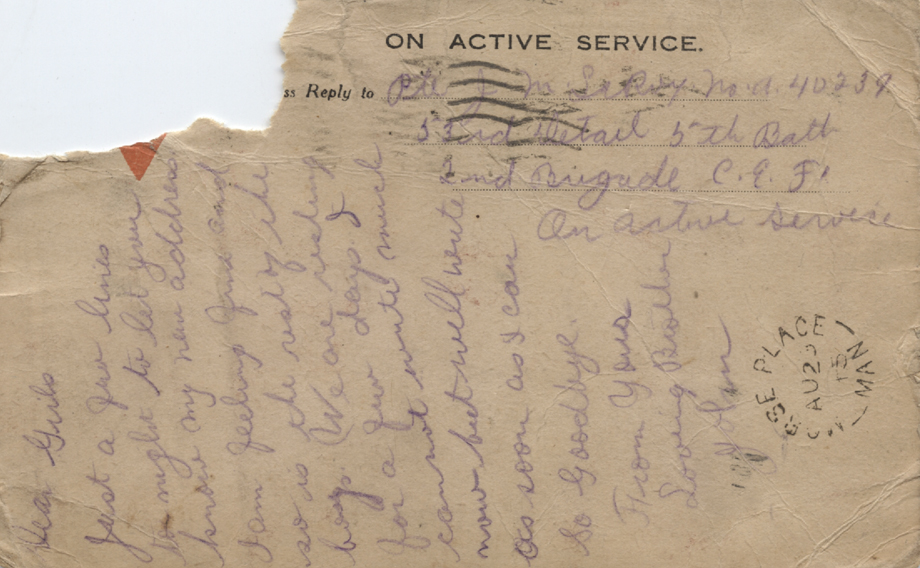 ON ACTIVE SERVICE.
ss Reply to Pte J. M. No. 40239
52nd Detail 5th Batt
2nd Brigade C. E. F.
On active service
Dear Girls
Just a few lines
to night to let you
know my new address
I am feeling fine and
so is the rest of the
boys. We are resting
for a few days. I
can not write much
now but will write
as soon as I can
So Goodbye.
From Your
Loving Brother
John
SE PLACE
AU 29
15
WMAN